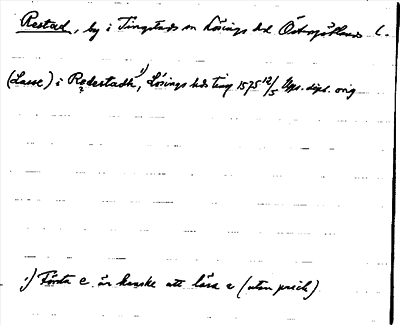 Restad, by i Tingstads sn Lösings hd Östergötlands l.
(Lasse) i Rodestadh ¹), Lösings hds ting 1575 12/5 Ups. dipl. orig
?
¹) Första e är kanske att läsa a (utan prick)